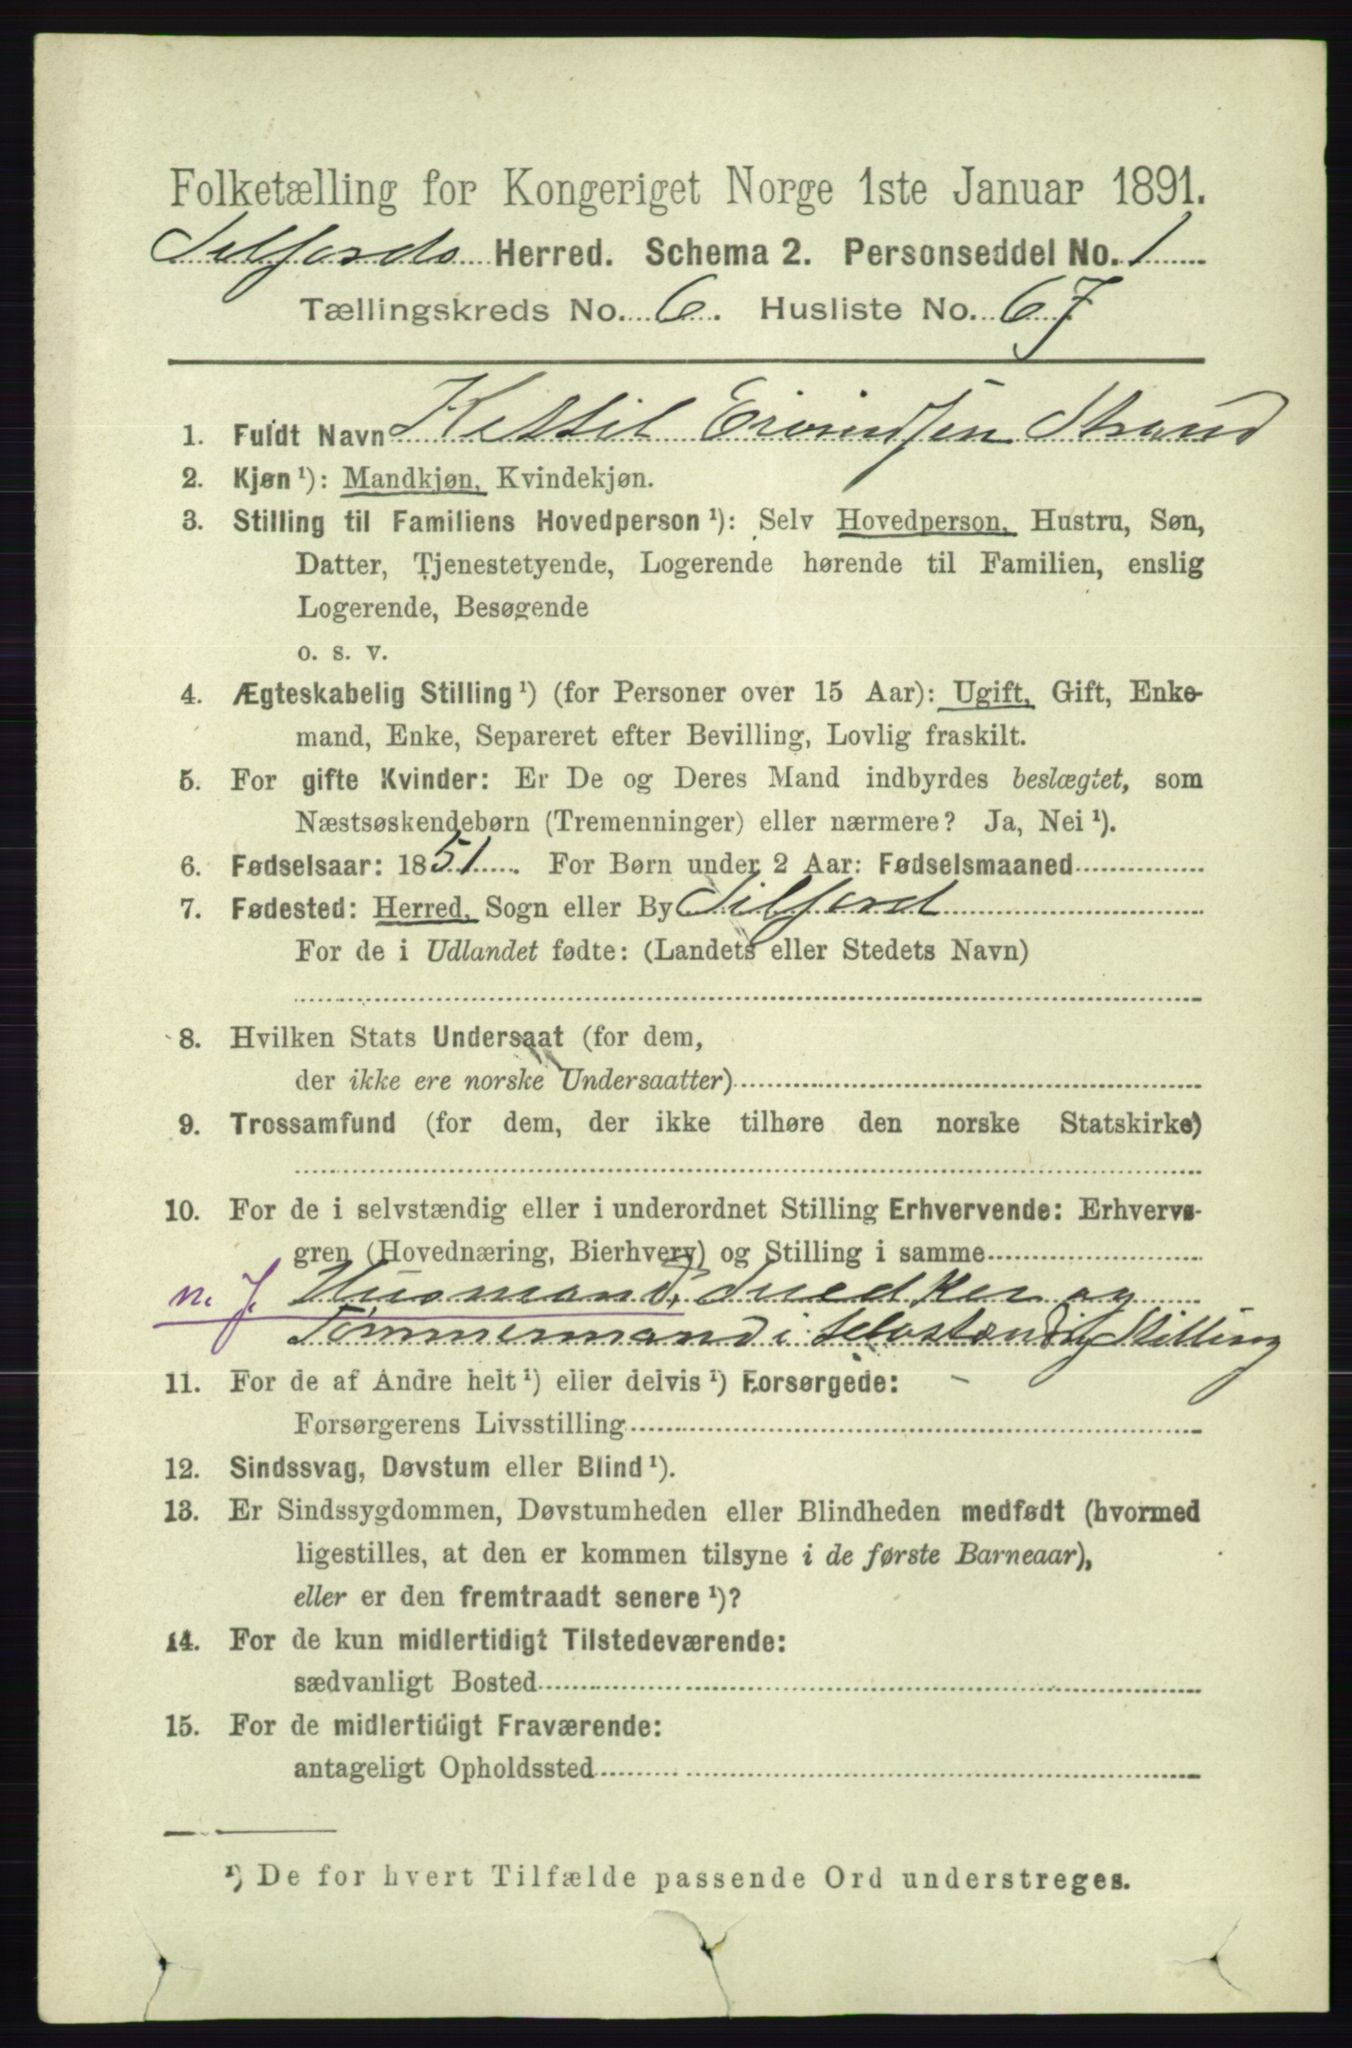 Folketælling for Kongeriget Norge 1ste Januar 1891.
Silfjords Herred. Schema 2. Personseddel No. 1
Tællingskreds No. 6. Husliste No. 67
1. Fuldt Navn Kittil Eivindsen Strand
2. Kjøn ¹): Mandkjøn, Kvindekjøn.
3. Stilling til Familiens Hovedperson ¹): Selv Hovedperson, Hustru, Søn,
Datter, Tjenestetyende, Logerende hørende til Familien, enslig
Logerende, Besøgende
o. s. v.
4. Ægteskabelig Stilling ¹) (for Personer over 15 Aar): Ugift, Gift, Enke-
mand, Enke, Separeret efter Bevilling, Lovlig fraskilt.
5. For gifte Kvinder: Er De og Deres Mand indbyrdes beslægtet, som
Næstsøskendebørn (Tremenninger) eller nærmere? Ja, Nei ¹).
6. Fødselsaar: 1851. For Børn under 2 Aar: Fødselsmaaned
7. Fødested: Herred, Sogn eller By Silfjord
For de i Udlandet fødte: (Landets eller Stedets Navn)
8. Hvilken Stats Undersaat (for dem,
der ikke ere norske Undersaatter)
9. Trossamfund (for dem, der ikke tilhøre den norske Statskirke)
10. For de i selvstændig eller i underordnet Stilling Erhvervende: Erhvervs-
gren (Hovednæring, Bierhverv) og Stilling i samme
m. J. Husmand, Snedker og
Tømmermand i selvstændig Stilling
11. For de af Andre helt ¹) eller delvis ¹) Forsørgede: -
Forsørgerens Livsstilling
12. Sindssvag, Døvstum eller Blind ¹).
13. Er Sindssygdommen, Døvstumheden eller Blindheden medfødt (hvormed
ligestilles, at den er kommen tilsyne i de første Barneaar),
eller er den fremtraadt senere ¹)?
14. For de kun midlertidigt Tilstedeværende:
sædvanligt Bosted
15. For de midlertidigt Fraværende:
antageligt Opholdssted
¹) De for hvert Tilfælde passende Ord understreges.